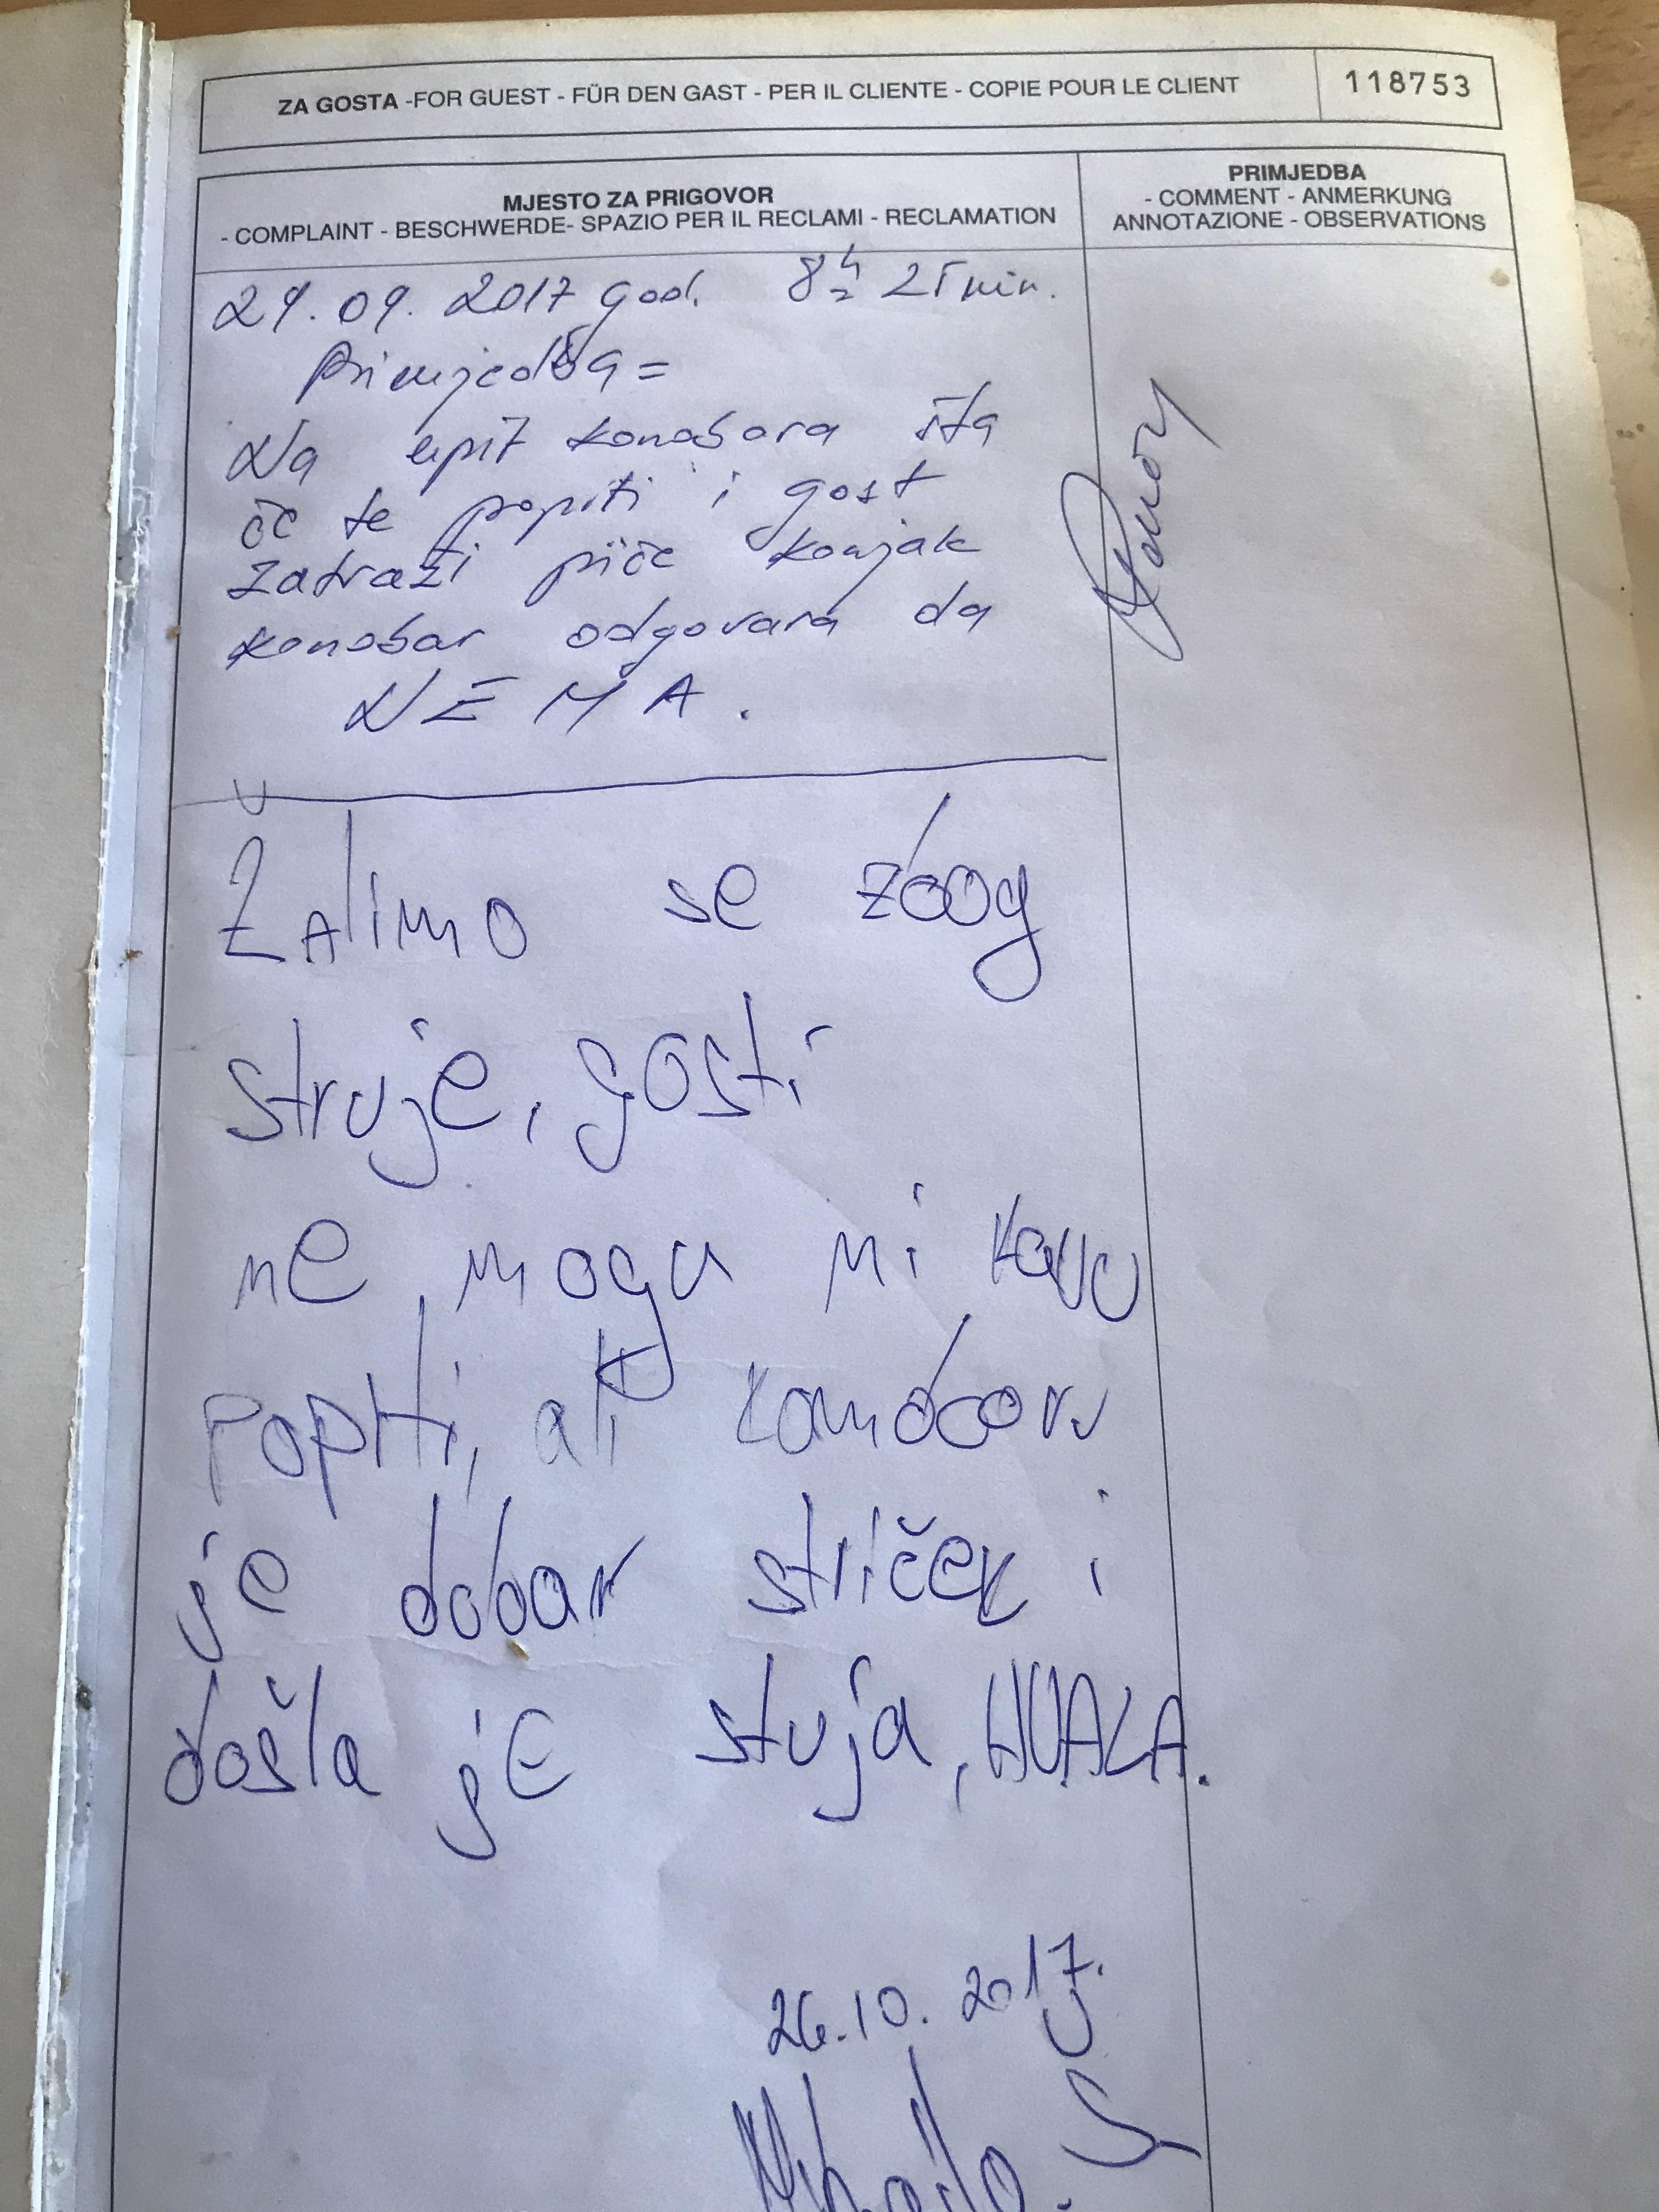 ZA GOSTA -FOR GUEST - FÜR DEN GAST - PER IL CLIENTE - COPIE POUR LE CLIENT
118753
MJESTO ZA PRIGOVOR
- COMPLAINT - BESCHWERDE- SPAZIO PER IL RECLAMI - RECLAMATION
PRIMJEDBA
- COMMENT - ANMERKUNG
ANNOTAZIONE - OBSERVATIONS
29.09. 2017 god. 8h 25 min.
Primjedba =
Na upit konobara šta
će te popiti i gost
zatraži piće konjak
konobar odgovara da
NEMA.
Žalimo se zbog
struje, gosti
ne mogu ni kavu
popiti, ali
je dobar striček i
došla je stuja, HVALA.
26.10. 2017.
Mihaela. S